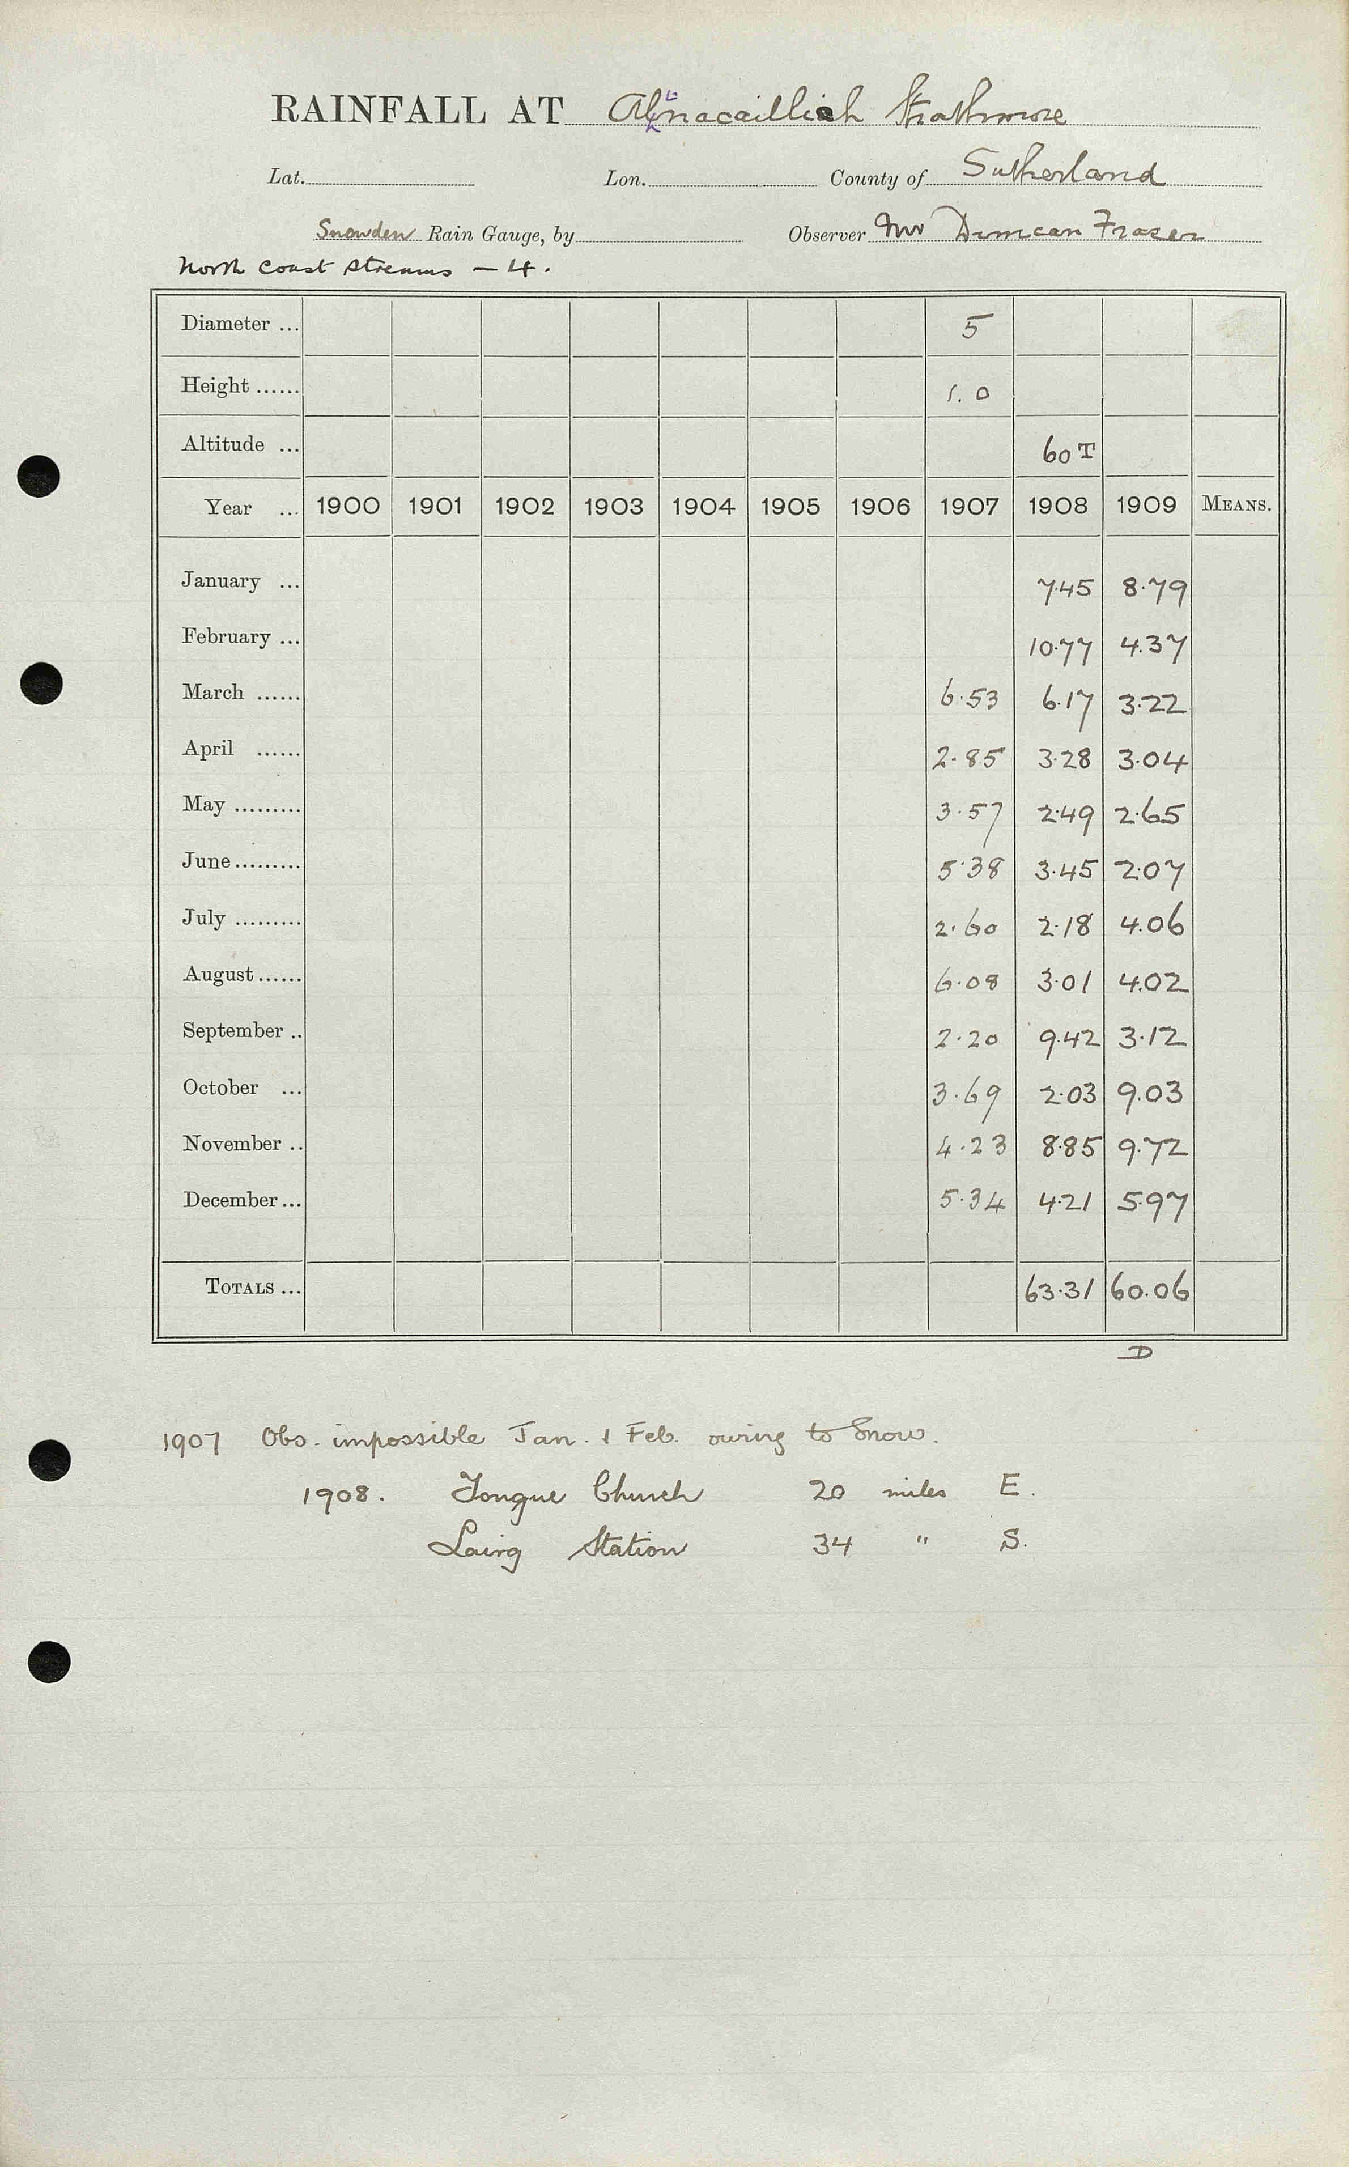 RAINFALL AT Altnacaillich Strathmore
Lat. Lon. County of Sutherland
Snowden Rain Gauge, by Observer Mr Duncan Fraser
North Coast Streams – 4.
Diameter ... 5
Height ...... 1.0
Altitude ... 60 T
Year ... 1900 1901 1902 1903 1904 1905 1906 1907 1908 1909 MEANS.
January ... 7.45 8.79
February ... 10.77 4.37
March ...... 6.53 6.17 3.22
April ...... 2.85 3.28 3.04
May ......... 3.57 2.49 2.65
June ......... 5.38 3.45 2.07
July ......... 2.60 2.18 4.06
August ...... 6.08 3.01 4.02
September .. 2.20 9.42 3.12
October ... 3.69 2.03 9.03
November .. 4.23 8.85 9.72
December ... 5.34 4.21 5.97
TOTALS ... 63.31 60.06
D
1907 Obs. impossible Jan. & Feb. owing to Snow.
1908. Tongue Church 20 miles E.
Lairg Station 34 " S.